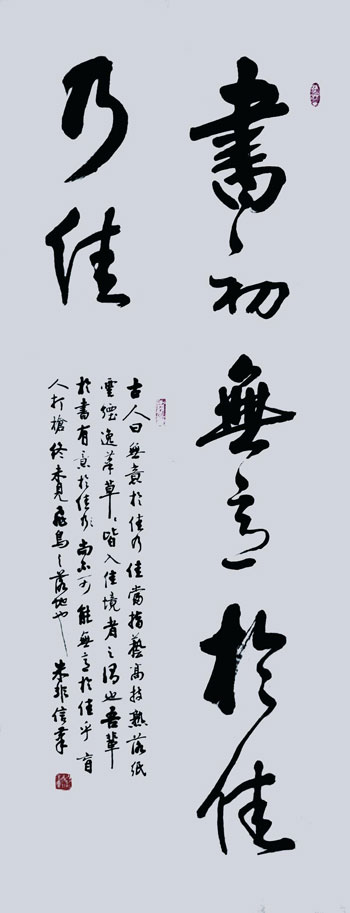 書初無意於佳
乃佳
古人曰無意於佳乃佳當指藝高技熟落紙
雲煙逸筆草草皆入佳境者之謂也吾輩
於書有意於佳乃尚不可能無意於佳乎盲
人打槍終未見飛鳥之落地也 朱非信筆